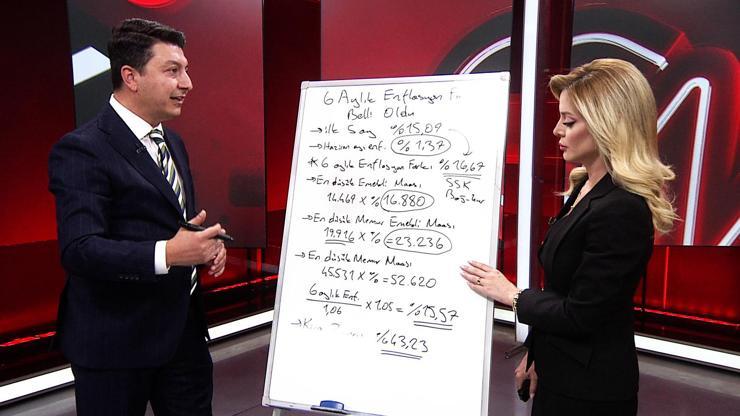 6 Aylık Enflasyon
Belli Oldu
→ ilk 5 ay %15,09
→ Haziran ayı enf. %1,37
* 6 aylık Enflasyon Farkı %16,67
SSK
Bağ-kur
→ En düşük Emekli Maaşı
14.469 x % 16.880
→ En düşük Memur Emekli Maaşı
19.916 x % = 23.236
→ En düşük Memur Maaşı
45531 x % = 52.620
6 aylık Enf.
1,06 x 1.05 = %15,57
→ %43,23